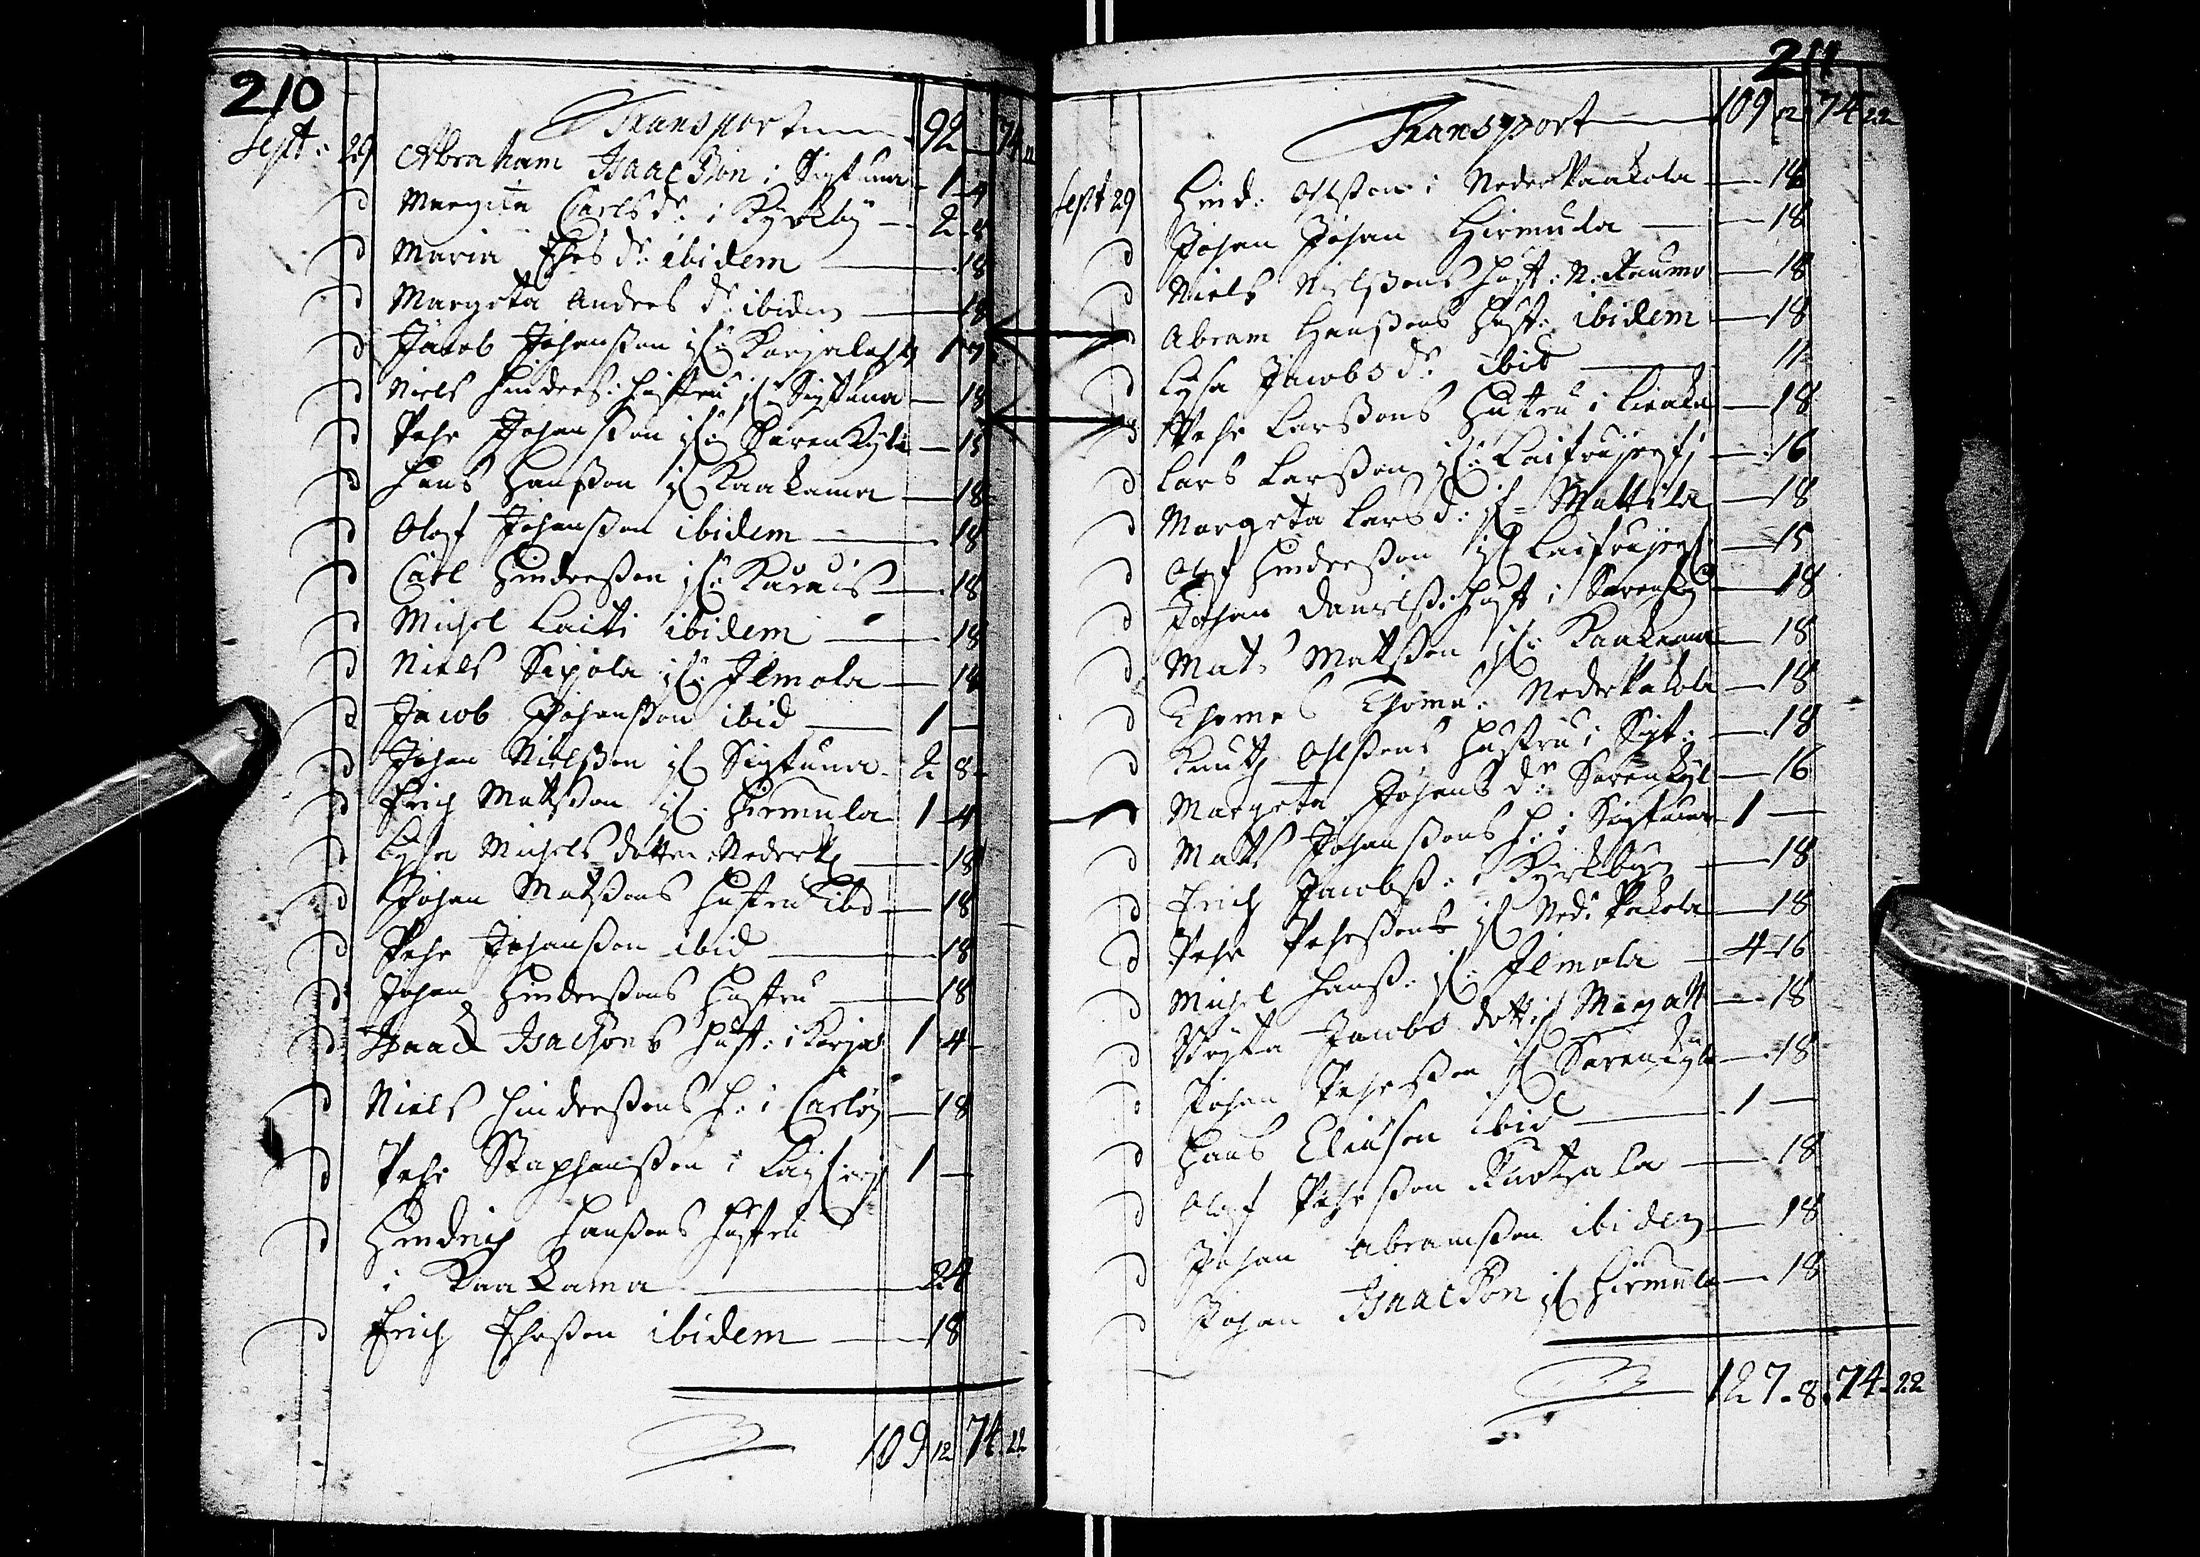 210
Transport 92 — 74 22
Sept: 29 Abraham Isaacßon i Sigtuna 1 4
d Margeta Carls dr i Kyrkby 2 8
d Maria Ephs dr ibidem 18
d Margeta Anders dr ibidem 18
d Jacob Johanßon if: 1
d Niels Hinderß: hustru if Sigtuna 18
d Pehr Johanßon if: Sarenkyla 15
d Hans Hanßon if Kaakama 18
d Olof Johanßon ibidem 18
d Carl Hinderßon if: Karuis 18
d Michel Laiti ibidem 18
d Niels Sipola if: Ilmola 18
d Jacob Johanßon ibid 1 —
d Johan Nielßon if Sigtuna 2 8
d Erich Mattßon if: Hirmula 1 4
d Lysa Michels dotter Nederk 18
d Johan Matßons hustru ibd 18
d Pehr Johanßon ibid 18
d Johan Hinderßons hustru 18
d Isaack Isacsons hust: i Korjal 1 4
d Niels Hinderßons h: i Carlöy 18
d Pehr Staphanßon i 1 —
d Hindrich Hanßons hustru
i Kaakama 24
d Erich Ehrßon ibidem 18
109 12 74 22
211
Transport 109 12 74 22
Sept 29 Hind: Olßon i Nederkaakola 18
d Johan Johan Hirmula 18
d Niels Nielßons hust: N: Raumo 18
d Abram Hanßons hust: ibidem 18
d Lysa Jacobs dr ibid 11
d Pehr Larßons hustru i Liedka 18
d Lars Larßon if: 16
d Margeta Lars d: if Mattila 18
d Olof Hinderßon if 15
d Johan Danielß: hust i Sarenkyl 18
d Mats Mattßon if: Kaakama 18
d Thomas Thoma: Nederkakola 18
d Knut Olßons hustru i Sigt: 18
d Margeta Johans dr Sarenkyl 16
Matts Johanßons h: i Sigtuna 1 —
d Erich Jacobß: i Kyrkbyn 18
d Pehr Pehrßons if Ned: kakola 18
d Michel Hanß: if: Ilmola 4 16
d Brytta Jacobs dotti 18
d Johan Pehrßon if Sarenkyla 18
d Hans Eliason ibid 1 —
d Olof Pehrßon Ruotzala 18
d Johan Abramßon ibidem 18
d Johan Isaacßon if Hirmula 18
127 8 74 22